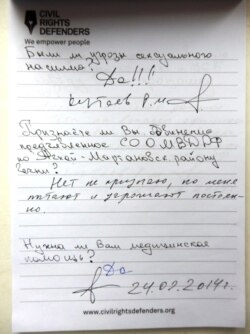 CIVIL
RIGHTS
DEFENDERS
We empower people
Были ли угрозы сексуального
насилия?
Да!!!
Кутаев Р.М
Признаёте ли Вы обвинение
предъявленное СО ОМВД РФ
по Ачхой-Мартановск. району
Нет не признаю, но меня
пытают и угрожают постоян-
но.
Нужна ли Вам медицинская
помощь?
Да
24.02.2014г.
www.civilrightsdefenders.org